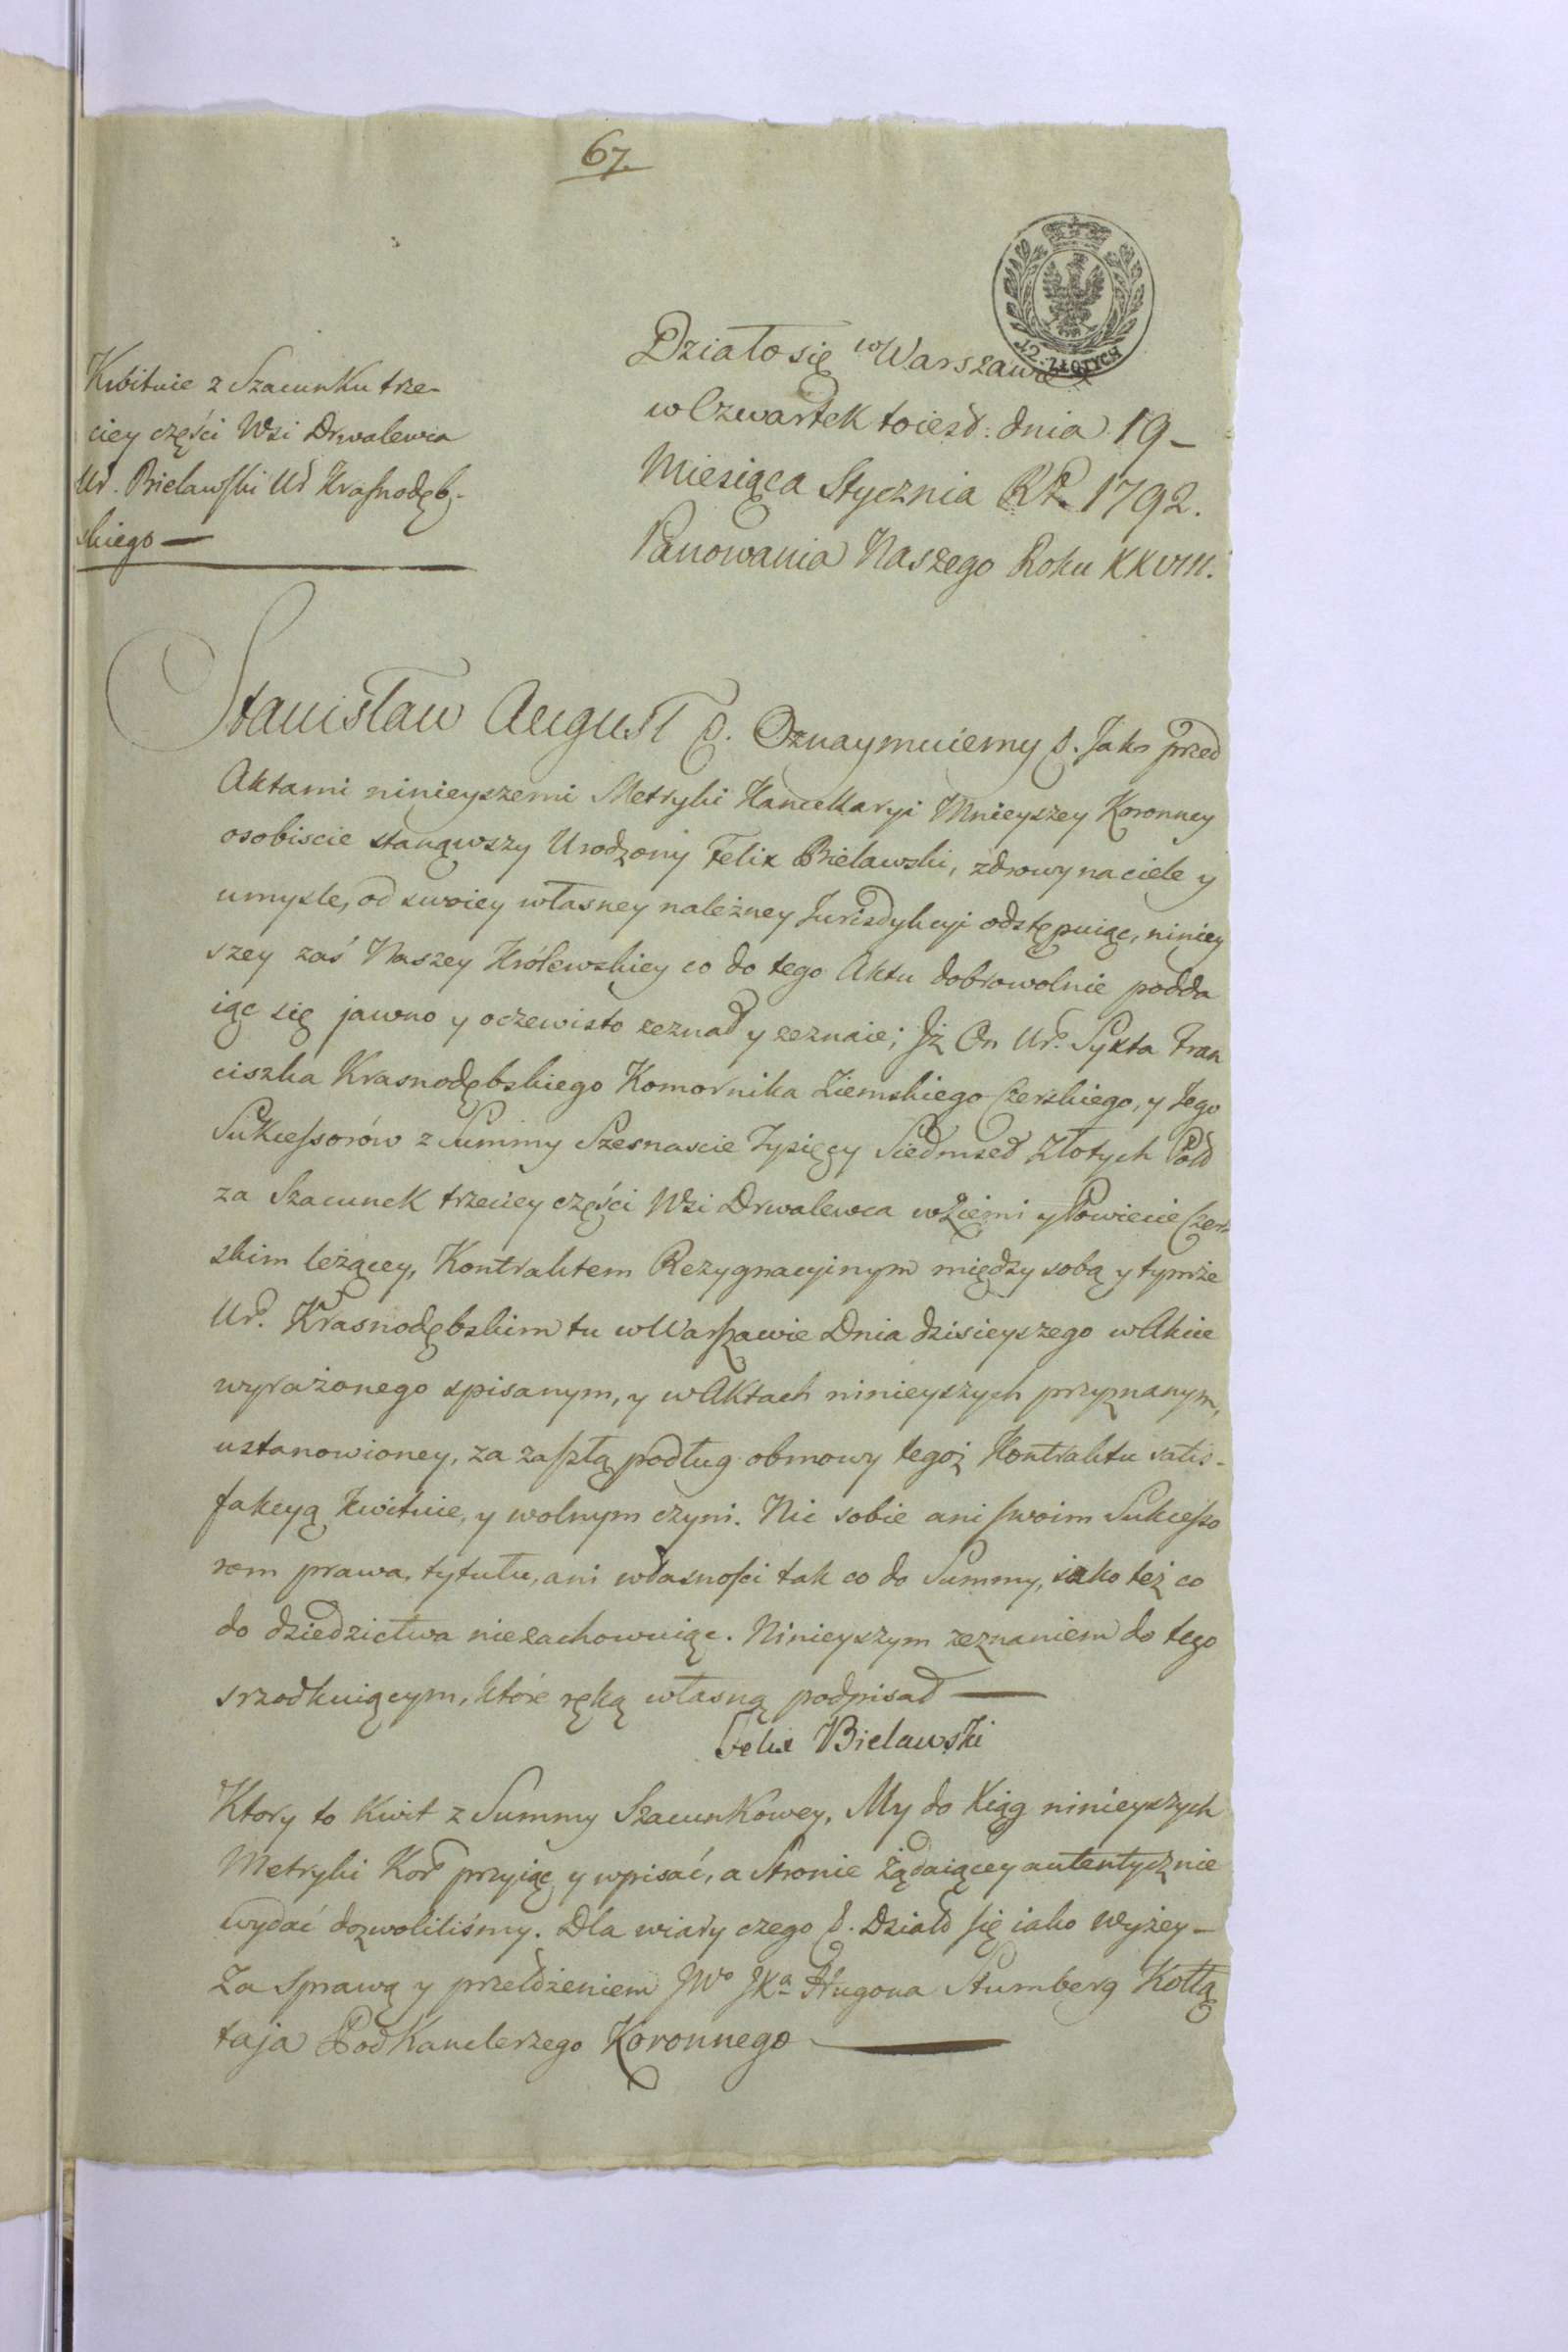 67.
12. ZŁOTYCH
Działo się w Warszawie
w Czwartek toiest: dnia 19-
Miesiąca Stycznia RP. 1792.
Panowania Naszego Roku XXVIII.
Kwituie z Szacunku trze-
ciey części Wsi Drwalewca
Ur. Bielawski Ur Krasnodęb-
skiego —
Stanisław August &. Oznaymuiemy &. Jako przed
Aktami ninieyszemi Metryki Kancellaryi Mnieyszey Koronney
osobiscie stanąwszy Urodzony Felix Bielawski, zdrowy na ciele y
umysle, od swoiey własney należney Jurisdykcyi odstępuiąc, niniey
szey zaś Naszey Królewskiey co do tego Aktu dobrowolnie podda
iąc się jawno y oczewisto zeznał y zeznaie; Jż On Ur. Syxta Fran
ciszka Krasnodębskiego Komornika Ziemskiego Czerskiego, y Jego
Sukcessorów z Summy Szesnascie Tysięcy Siedmset Złotych Pold
za Szacunek trzeciey części Wsi Drwalewca w Ziemi y Powiecie Czer-
skim leżącey, Kontraktem Rezygnacyinym między sobą y tymże
Ur. Krasnodębskim tu w Warszawie Dnia dzisieyszego w Akcie
wyrażonego spisanym, y w Aktach ninieyszych przyznanym,
ustanowioney, za zaszłą podług obmowy tegoż Kontraktu satis-
fakcyą kwituie, y wolnym czyni. Nic sobie ani swoim Sukcesso
rom prawa, tytułu, ani własności tak co do Summy, iako też co
do dziedzictwa niezachowuiąc. Ninieyszym zeznaniem do tego
srzodkuiącym, które ręką własną podpisał —
Felix Bielawski
Ktory to Kwit z Summy Szacunkowey, My do Xiąg ninieyszych
Metryki Kor przyiąć y wpisać, a Stronie żądaiącey autentycznie
wydać dozwoliliśmy. Dla wiary czego &. Działo się iako wyżey-
Za Sprawą y przełożeniem JWo JXa Hugona Stumberg Kołłą
taja PodKanclerzego Koronnego —